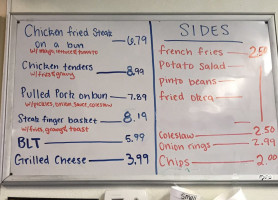 Chicken fried Steak
on a bun
6.79
w/mayo, lettuce & tomato
Chicken tenders
8.99
w/fries & gravy
Pulled Pork on bun 7.89
w/pickles, onion, sauce, coleslaw
Steak finger basket 8.19
w/fries, gravy & toast
BLT 5.99
Grilled Cheese 3.99
SIDES
french fries 2.50
Potato Salad
pinto beans
fried okra
Coleslaw 2.50
Onion rings 2.99
Chips 2.00
Small